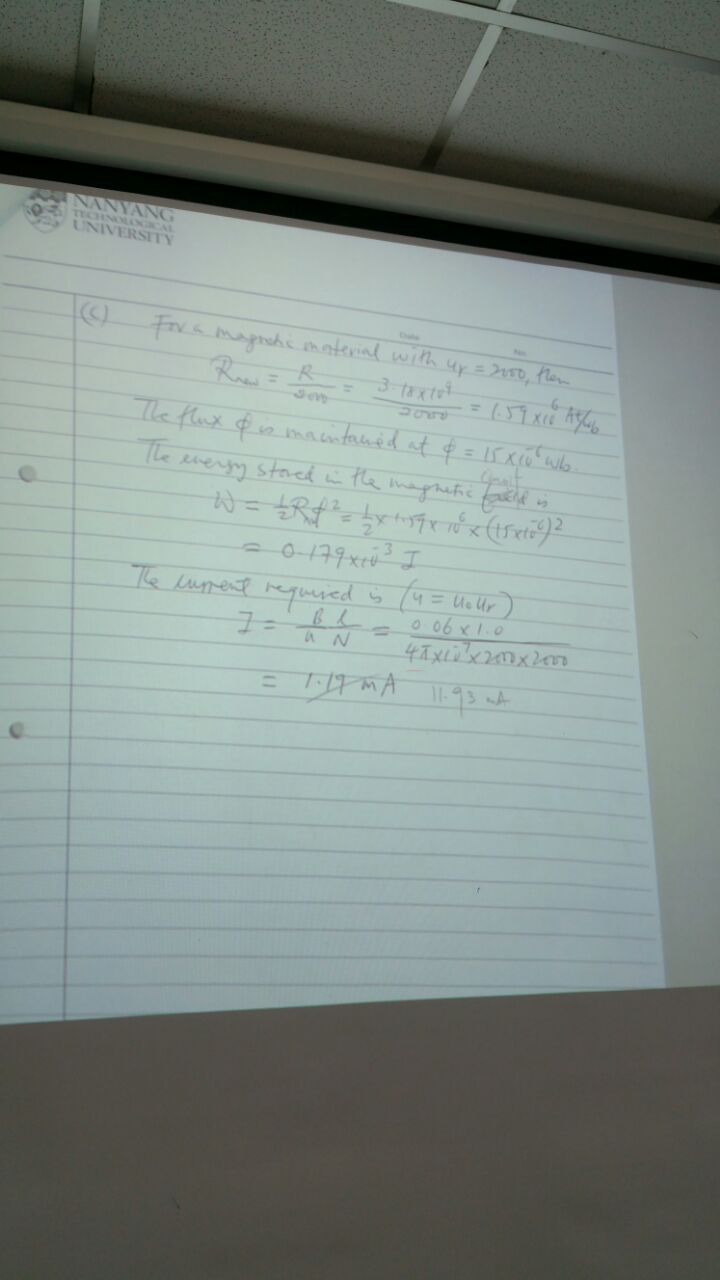 NANYANG
TECHNOLOGICAL
UNIVERSITY
Date No.
(c) For a magnetic material with ur = 2000, then
Rnew = R/2000 = 3.18x10⁹/2000 = 1.59x10⁶ At/wb
The flux ϕ is maintained at ϕ = 15x10⁻⁶ wb.
The energy stored in the magnetic is
W = ½Rϕ² = ½ x 1.59x10⁶ x (15x10⁻⁶)²
= 0.179x10⁻³ J
The current required is (u = u₀ur)
I = B/u l/N = 0.06 x 1.0/4πx10⁻⁷x2000x2000
= 1.19 mA 11.93 mA